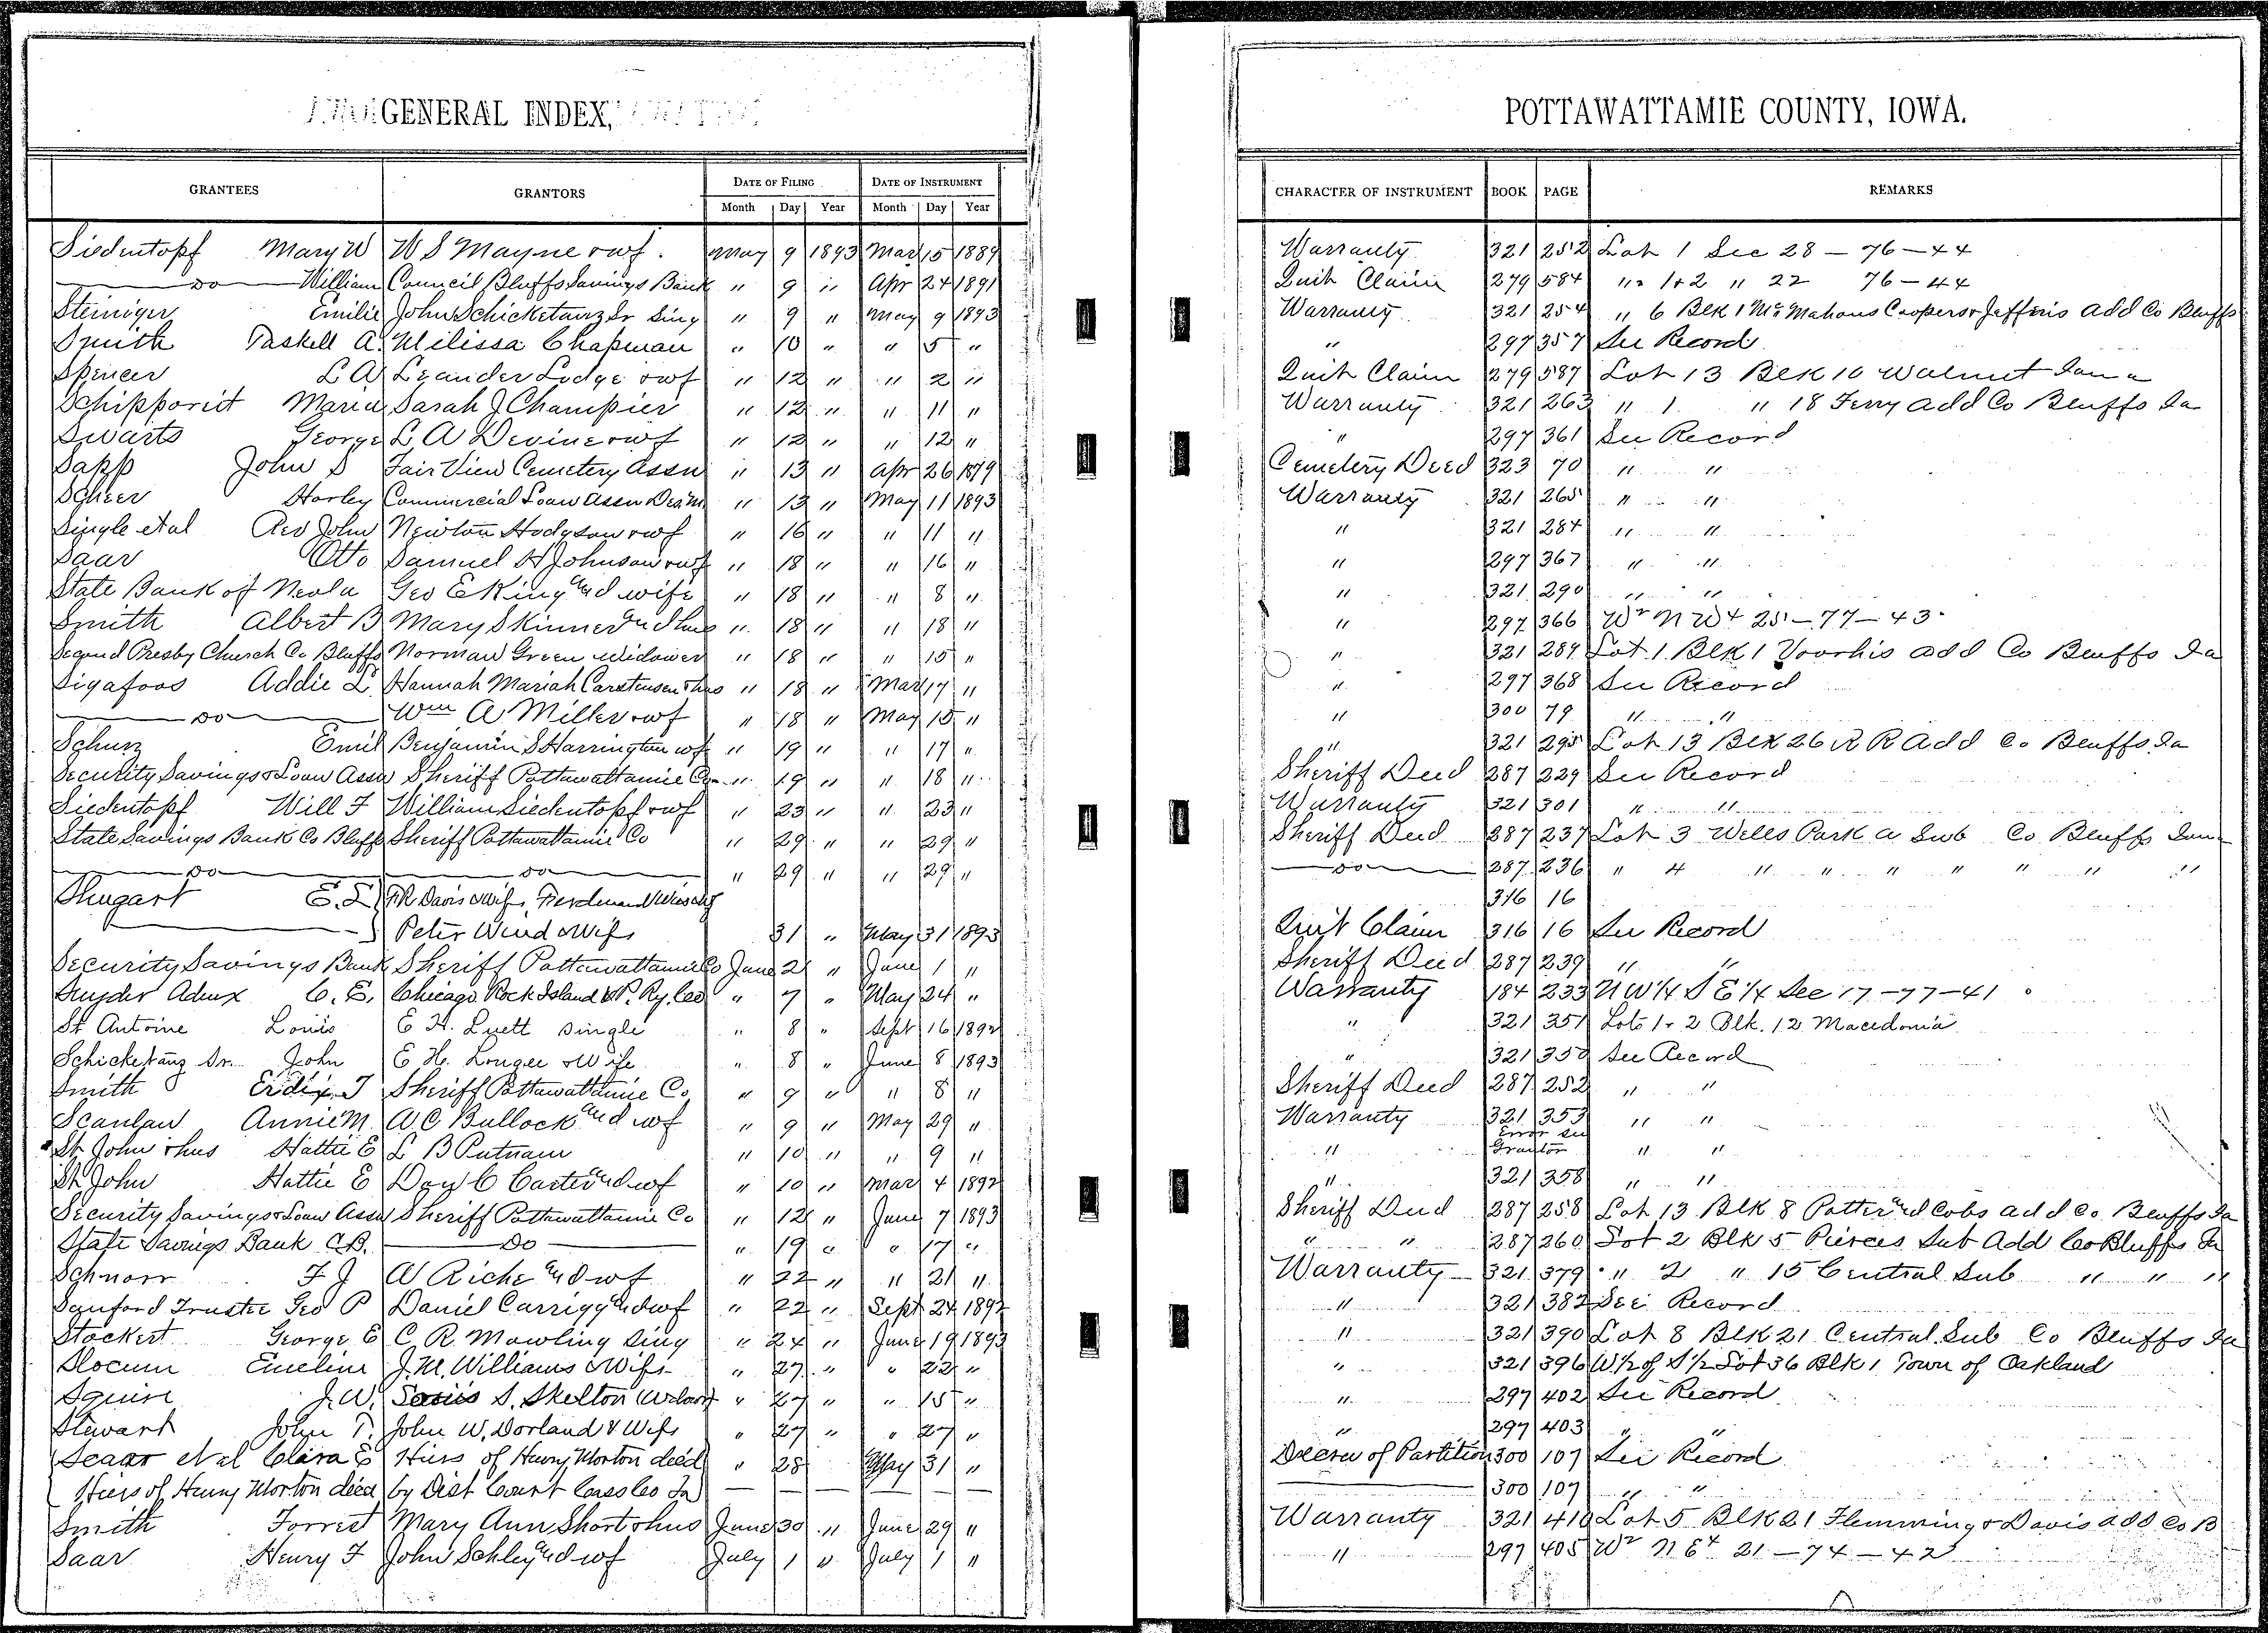 GENERAL INDEX,
POTTAWATTAMIE COUNTY, IOWA.
GRANTEES GRANTORS DATE OF FILING DATE OF INSTRUMENT CHARACTER OF INSTRUMENT BOOK PAGE REMARKS
Month Day Year Month Day Year
Siedentopf Mary W W S Mayne & wf. May 9 1893 Mar 15 1889 Warranty 321 252 Lot 1 Sec 28 - 76 - 44
Do William Council Bluffs Savings Bank " 9 " Apr 24 1891 Quit Claim 279 584 " 1+2 " 22 76 - 44
Steiniger Emilie John Schicketanz Sr Sing " 9 " May 9 1893 Warranty 321 254 " 6 Blk 1 McMahons Coopers & Jefferis Add Co Bluffs
Smith Paskell A. Milissa Chapman " 10 " " 5 " " 297 357 See Record
Spencer L A Leander Lodge & wf " 12 " " 2 " Quit Claim 279 587 Lot 13 Blk 10 Walnut Iowa
Maria Sarah J Champier " 12 " " 11 " Warranty 321 263 " 1 " 18 Ferry Add Co Bluffs Ia
Swarts George L A Devine & wf " 12 " " 12 " " 297 361 See Record
Sapp John S Fair View Cemetery Assn " 13 " Apr 26 1879 Cemetery Deed 323 70 " "
Scheer Harley Commercial Loan Assn Des M. " 13 " May 11 1893 Warranty 321 265 " "
Single et al Rev John Newton Hodgson & wf " 16 " " 11 " " 321 284 " "
Saar Otto Samuel H Johnson & wf " 18 " " 16 " " 297 367 " "
State Bank of Neola Geo E King and wife " 18 " " 8 " " 321 290 " "
Smith Albert B Mary Skinner and hus " 18 " " 18 " " 297 366 W2 N W4 25 - 77 - 43
Second Presby Church Co Bluffs Norman Green Widower " 18 " " 15 " " 321 289 Lot 1 Blk 1 Voorhis Add Co Bluffs Ia
Sigafoos Addie L. Hannah Mariah Carstensen & hus " 18 " Mar 17 " " 297 368 See Record
Do Wm A Miller & wf " 18 " May 15 " " 300 79 " "
Schurz Emil Benjamin S Harrington & wf " 19 " " 17 " " 321 295 Lot 13 Blk 26 R R Add Co Bluffs Ia
Security Savings & Loan Assn Sheriff Pottawattamie Co " 19 " " 18 " Sheriff Deed 287 229 See Record
Siedentopf Will F William Siedentopf & wf " 23 " " 23 " Warranty 321 301 " "
State Savings Bank Co Bluffs Sheriff Pottawattamie Co " 29 " " 29 " Sheriff Deed 287 237 Lot 3 Wells Park a Sub Co Bluffs Iowa
Do Do " 29 " " 29 " Do 287 236 " 4 " " " " " " "
Shugart E. L. F R Davis & Wife, Ferdinand 316 16
Peter Wind & Wife 31 " May 31 1893 Quit Claim 316 16 See Record
Security Savings Bank Sheriff Pottawattamie Co June 2 " June 1 " Sheriff Deed 287 239 " "
Snyder Admx C. E. Chicago Rock Island & P. Ry. Co " 7 " May 24 " Warranty 184 233 N W 1/4 S E 1/4 Sec 17 - 77 - 41
St Antoine Louis E H. Luett single " 8 " Sept 16 1892 " 321 351 Lots 1 & 2 Blk. 12 Macedonia
Schicketanz Sr. John E H. Lougee & Wife " 8 " June 8 1893 " 321 350 See Record
Smith J Sheriff Pottawattamie Co " 9 " " 8 " Sheriff Deed 287 252 " "
Scanlan Annie M. A C Bullock and wf " 9 " May 29 " Warranty 321 353 " "
St John & hus Hattie E L B Putnam " 10 " " 9 " " Error See Grantor " "
St John Hattie E Day C Carter and wf " 10 " Mar 4 1892 " 321 358 " "
Security Savings & Loan Assn Sheriff Pottawattamie Co " 12 " June 7 1893 Sheriff Deed 287 258 Lot 13 Blk 8 Potter and Cobs Add Co. Bluffs Ia
State Savings Bank C.B. Do " 19 " " 17 " " " 287 260 Lot 2 Blk 5 Pierces Sub Add Co Bluffs Ia
Schnorr F J A Riche and wf " 22 " " 21 " Warranty 321 379 " 2 " 15 Central Sub " " "
Sanford Trustee Geo P Daniel Carrigg and wf " 22 " Sept 24 1892 " 321 382 See Record
Stockert George E C R Mowling Sing " 24 " June 19 1893 " 321 390 Lot 8 Blk 21 Central Sub Co Bluffs Ia
Slocum Emeline J. M. Williams & Wife " 27 " " 22 " " 321 396 W 1/2 of S 1/2 Lot 36 Blk 1 Town of Oakland
Squire J. W. S. Skelton " 27 " " 15 " " 297 402 See Record
Stewart John T. John W. Dorland & Wife " 27 " " 27 " " 297 403 " "
et al Clara E Heirs of Henry Morton decd " 28 May 31 " Decree of Partition 300 107 See Record
Heirs of Henry Morton decd by Dist Court Cass Co Ia — — — — — 300 107 " "
Smith Forrest Mary Ann Short & hus June 30 " June 29 " Warranty 321 410 Lot 5 Blk 21 Flemming & Davis Add Co B
Saar Henry F John Schley and wf July 1 " July 1 " " 297 405 W2 N E4 21 - 74 - 42